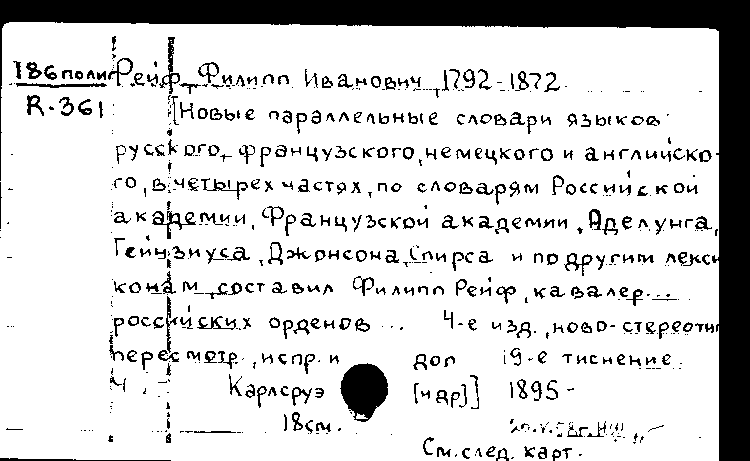 I86поли Рейф, Филипп Иванович, 1792-1872
R-361 [Новые параллельные словари языков
русского, французского, немецкого и английско-
го, в четырех частях, по словарям Российской
академии, Французской академии, Аделунга,
Гейнзиуса, Джонсона, Спирса и по другим лекси
конам, составил Филипп Рейф, кавалер...
российских орденов... 4-е изд., ново-стереотип
пересмотр., испр. и доп 19-е тиснение.
Ч. - Карлсруэ [и др]] 1895-
18см.
См. след. карт.